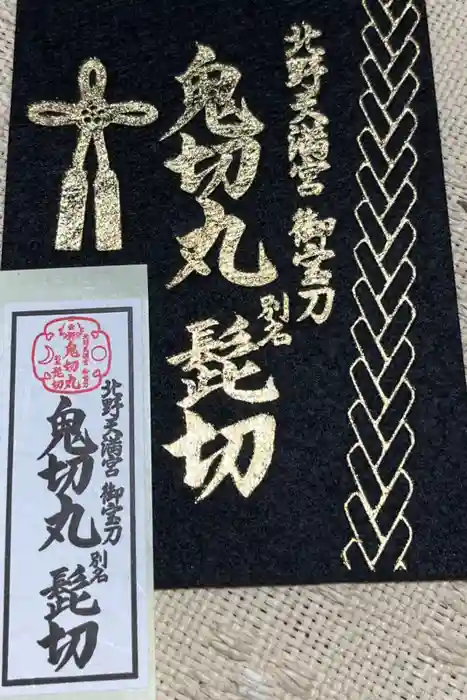 北野天満宮 御宝刀
鬼切丸 別名 髭切
北野天満宮 御宝刀
鬼切丸 別名 髭切
鬼切丸